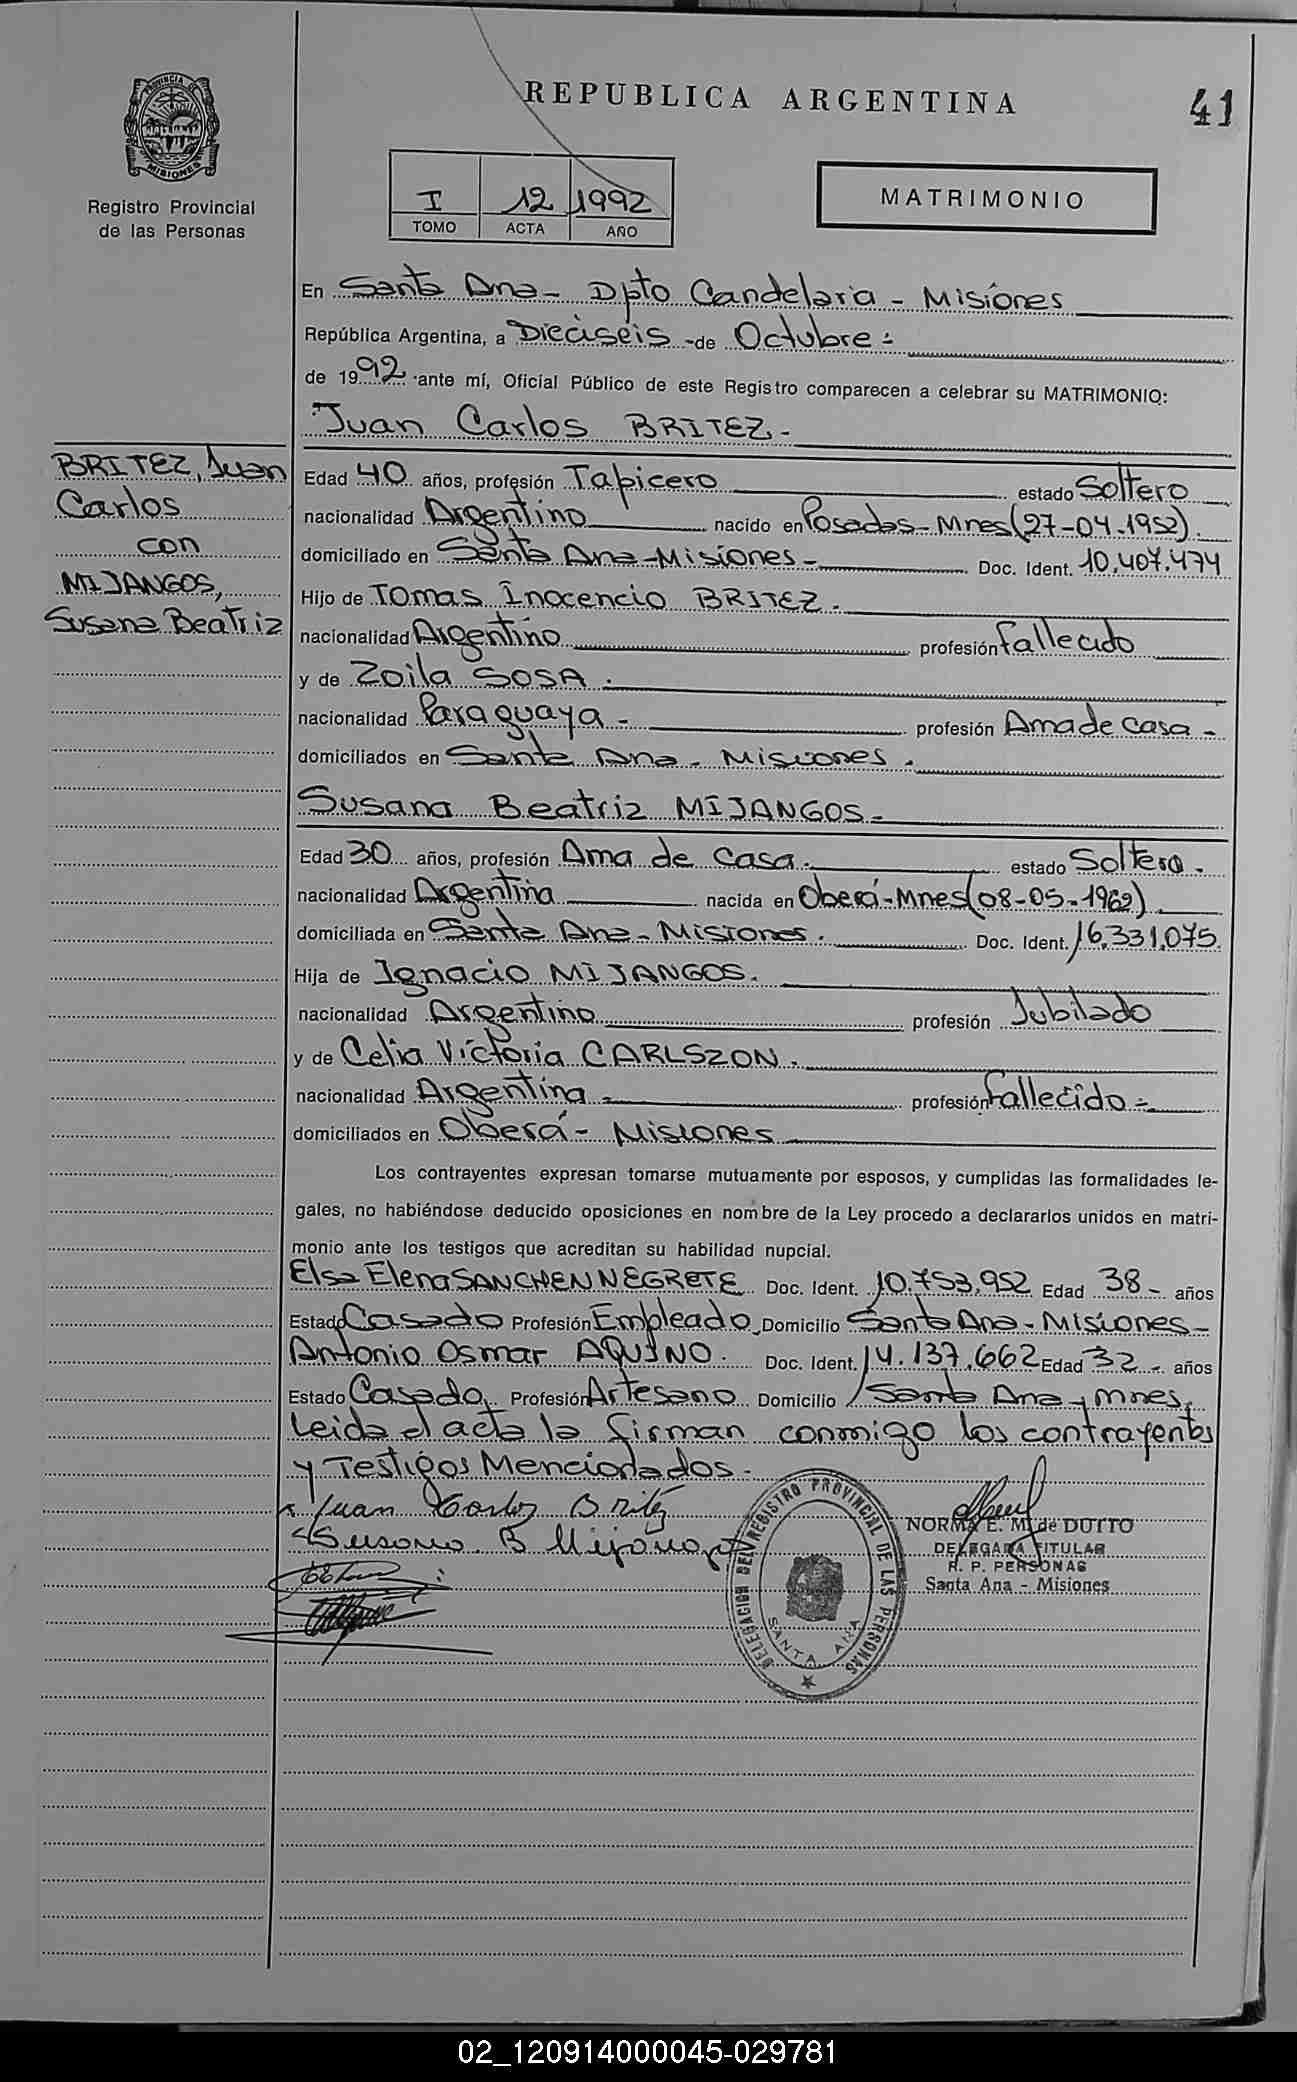 REPUBLICA ARGENTINA
41
PROVINCIA DE MISIONES
Registro Provincial
de las Personas
I 12 1992
TOMO ACTA AÑO
MATRIMONIO
En Santa Ana - Dpto Candelaria - Misiones
República Argentina, a Dieciseis - de Octubre -
de 1992 ante mí, Oficial Público de este Registro comparecen a celebrar su MATRIMONIO:
Juan Carlos BRITEZ -
BRITEZ, Juan
Carlos
con
MIJANGOS,
Susana Beatriz
Edad 40 años, profesión Tapicero estado Soltero
nacionalidad Argentino nacido en Posadas - Mnes (27-04-1952).
domiciliado en Santa Ana - Misiones - Doc. Ident. 10.407.474
Hijo de Tomas Inocencio BRITEZ.
nacionalidad Argentino profesión fallecido
y de Zoila SOSA.
nacionalidad Paraguaya - profesión Ama de casa -
domiciliados en Santa Ana - Misiones.
Susana Beatriz MIJANGOS -
Edad 30 años, profesión Ama de Casa. estado Soltera -
nacionalidad Argentina nacida en Oberá - Mnes (08-05-1962).
domiciliada en Santa Ana - Misiones. Doc. Ident. 16.331.075
Hija de Ignacio MIJANGOS.
nacionalidad Argentino profesión Jubilado
y de Celia Victoria CARLSZON.
nacionalidad Argentina - profesión fallecido -
domiciliados en Oberá - Misiones
Los contrayentes expresan tomarse mutuamente por esposos, y cumplidas las formalidades le-
gales, no habiéndose deducido oposiciones en nombre de la Ley procedo a declararlos unidos en matri-
monio ante los testigos que acreditan su habilidad nupcial.
Elsa Elena SANCHEN NEGRETE Doc. Ident. 10.753.952 Edad 38 - años
Estado Casado Profesión Empleado Domicilio Santa Ana - Misiones -
Antonio Osmar AQUINO. Doc. Ident. 14.137.662 Edad 32 - años
Estado Casado Profesión Artesano Domicilio Santa Ana - Mnes.
Leida el acta la firman conmigo los contrayentes
y Testigos Mencionados -
Juan Carlos Britez
Susana B Mijangos
DELEGACION DEL REGISTRO PROVINCIAL DE LAS PERSONAS
SANTA ANA
NORMA E. M. de DUTTO
DELEGADA TITULAR
R. P. PERSONAS
Santa Ana - Misiones
02_120914000045-029781